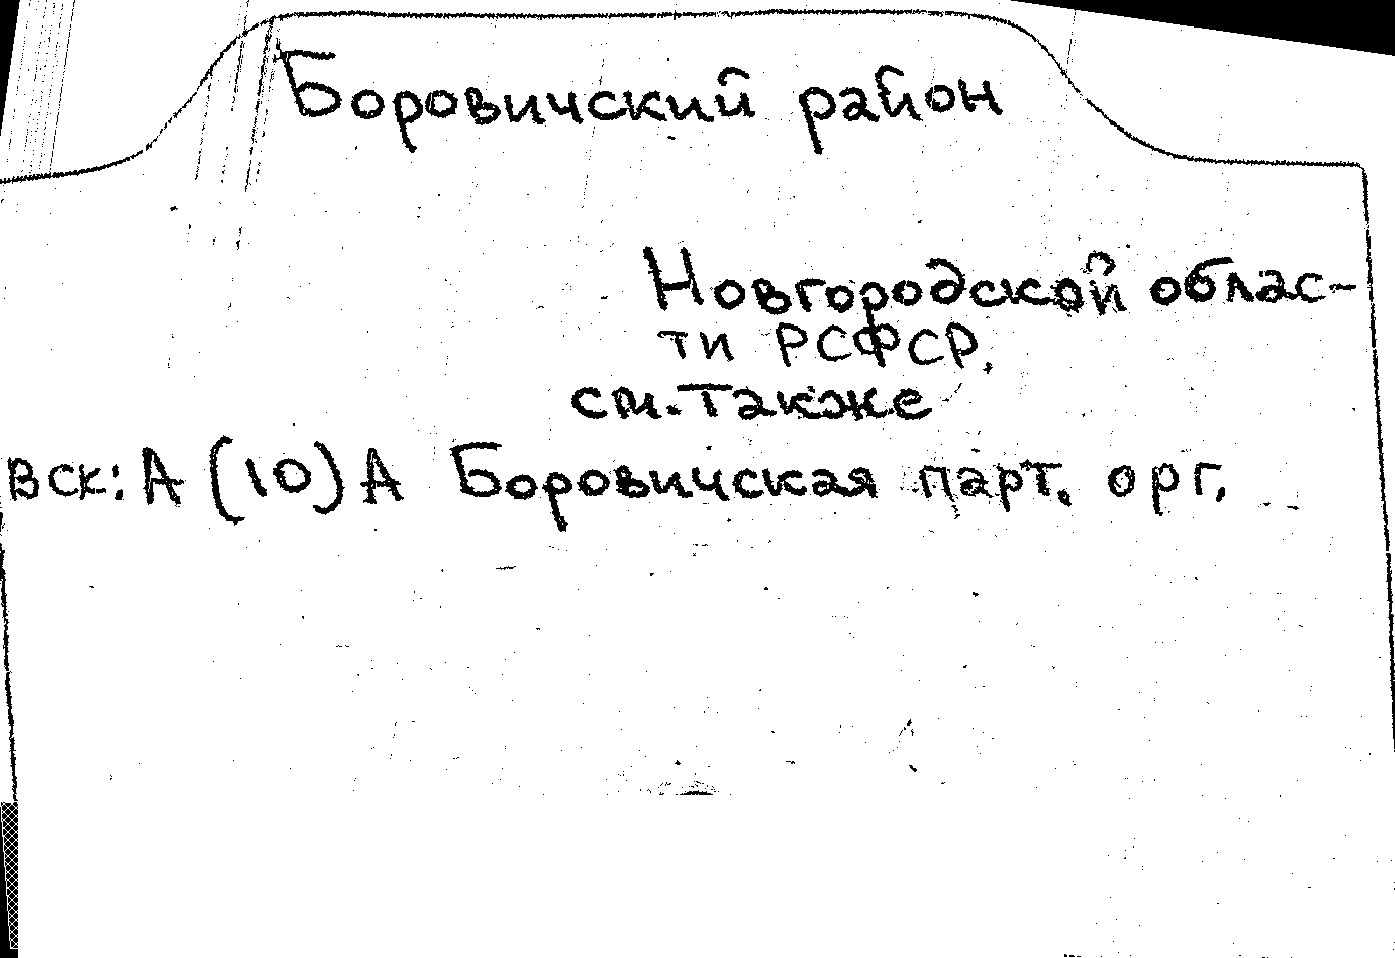 Боровичский район
Новгородской облас-
ти РСФСР.
см. также
вск: А (10) А Боровичская парт. орг.